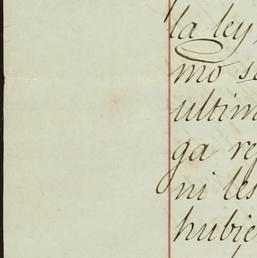 la ley,
mo se
ultim
ga re
ni les
hubie